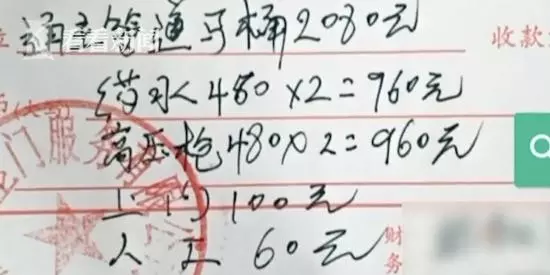 看看新闻
通主管通马桶2080元
收款
药水480×2=960元
高压枪480×2=960元
门服务
上门100元
人工 60元
财
务